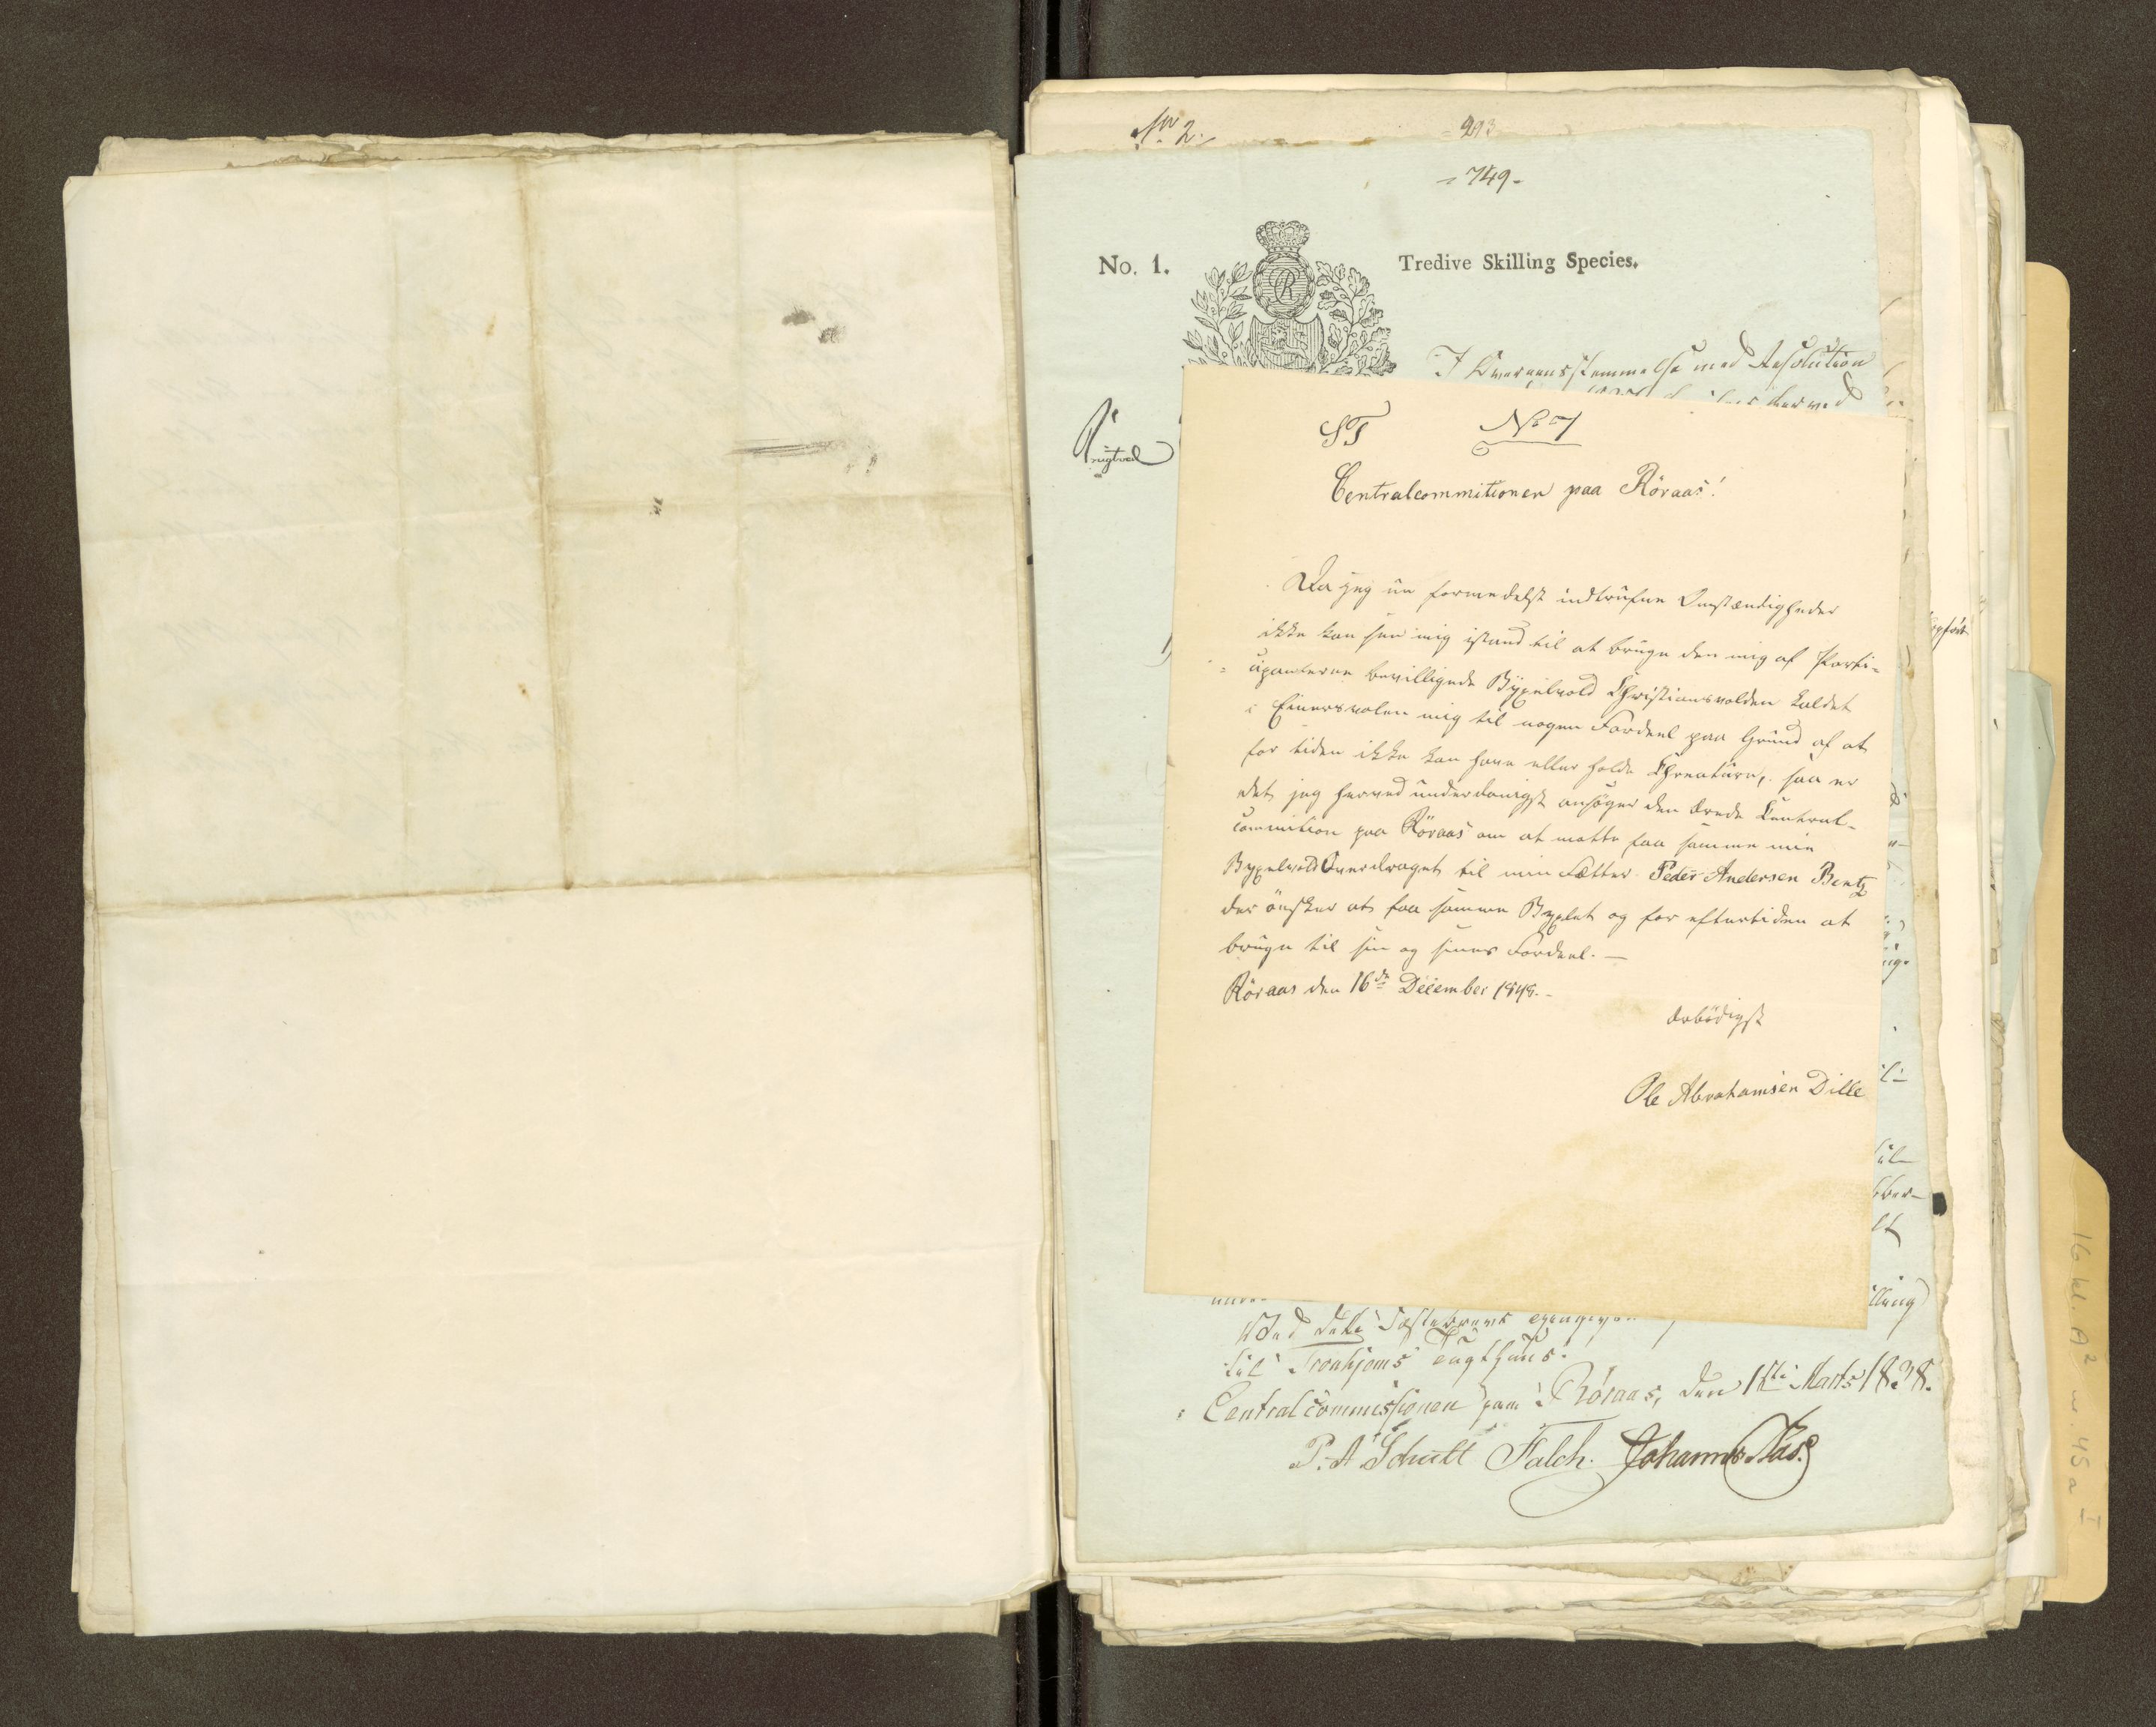 No 2.
= 293
= 749 -
No. 1.
Tredive Skilling Species.
R
I Overeensstemmelse med Resolution
herved
ST
No 7
Centralcommitionen paa Röraas!
Da jeg nu formedelst indtrufne Omstændigheder
ikke kan see mig istand til at bruge den mig af Parti-
cipanterne bevilligede Byxelvold Christiansvolden kaldet
i Einersvolen mig til nogen Fordeel paa Grund af at
for tiden ikke kan have eller holde Chreature, saa er
det jeg herved underdanigst ansøger den ærede Central-
commition paa Röraas om at matte faa samme min
Byxelvold Overdraget til min Fætter Peder Andersen Bentz
der önsker at faa samme Byxlet og for eftertiden at
bruge til sin og sines Fordeel. —
Röraas den 16de December 1848.-
ærbödigst
Ole Abrahamsen Dille
Med dette
til Tronhjems Tugthuus.
Centralcommissionen paa Röraas, den 1ste Marts 1838.
P. A Schult Falch. Johannes Aas.
16 kl. A2 nr. 45 a I